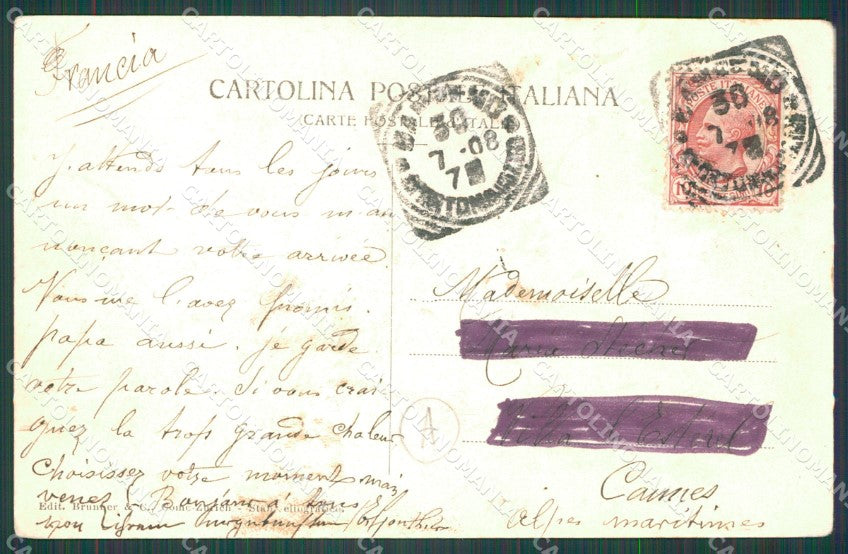 Francia
CARTOLINA POSTALE ITALIANA
(CARTE POSTALE D'ITALIE)
J'attends tous les jours
un mot de vous m'an
nonçant votre arrivée
Vous me l'avez promis.
papa aussi. je garde
votre parole. Si vous crai
gnez la trop grande chaleur
Choisissez votre moment mais
venez! Bonjour à tous
Edit. Brunner & C. Como-Zürich - Stab. eliografico.
30
7 -08
7
POSTE ITALIANE
10
30
7 -08
Mademoiselle
Villa
Cannes
Alpes maritimes
CARTOLINOMANIA